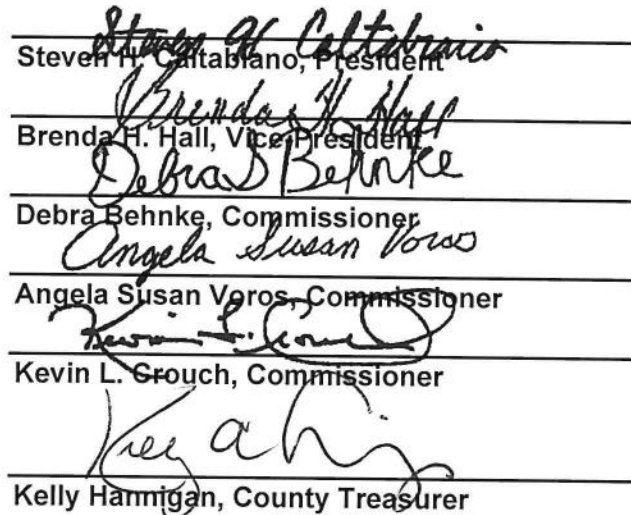 Steven H Caltabiano
Steven H. Caltabiano, President
Brenda H. Hall
Brenda H. Hall, Vice President
Debra S Behnke
Debra Behnke, Commissioner
Angela Susan Voros
Angela Susan Voros, Commissioner
Kevin L. Crouch
Kevin L. Crouch, Commissioner
Kelly Hannigan, County Treasurer